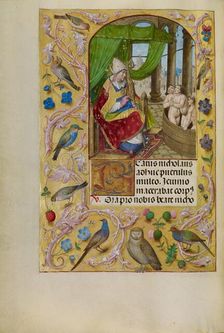 Eatus nicholaus
adhuc puerulus
multo. Jeiunio
macerabat corp9
Ora pro nobis beate nicho